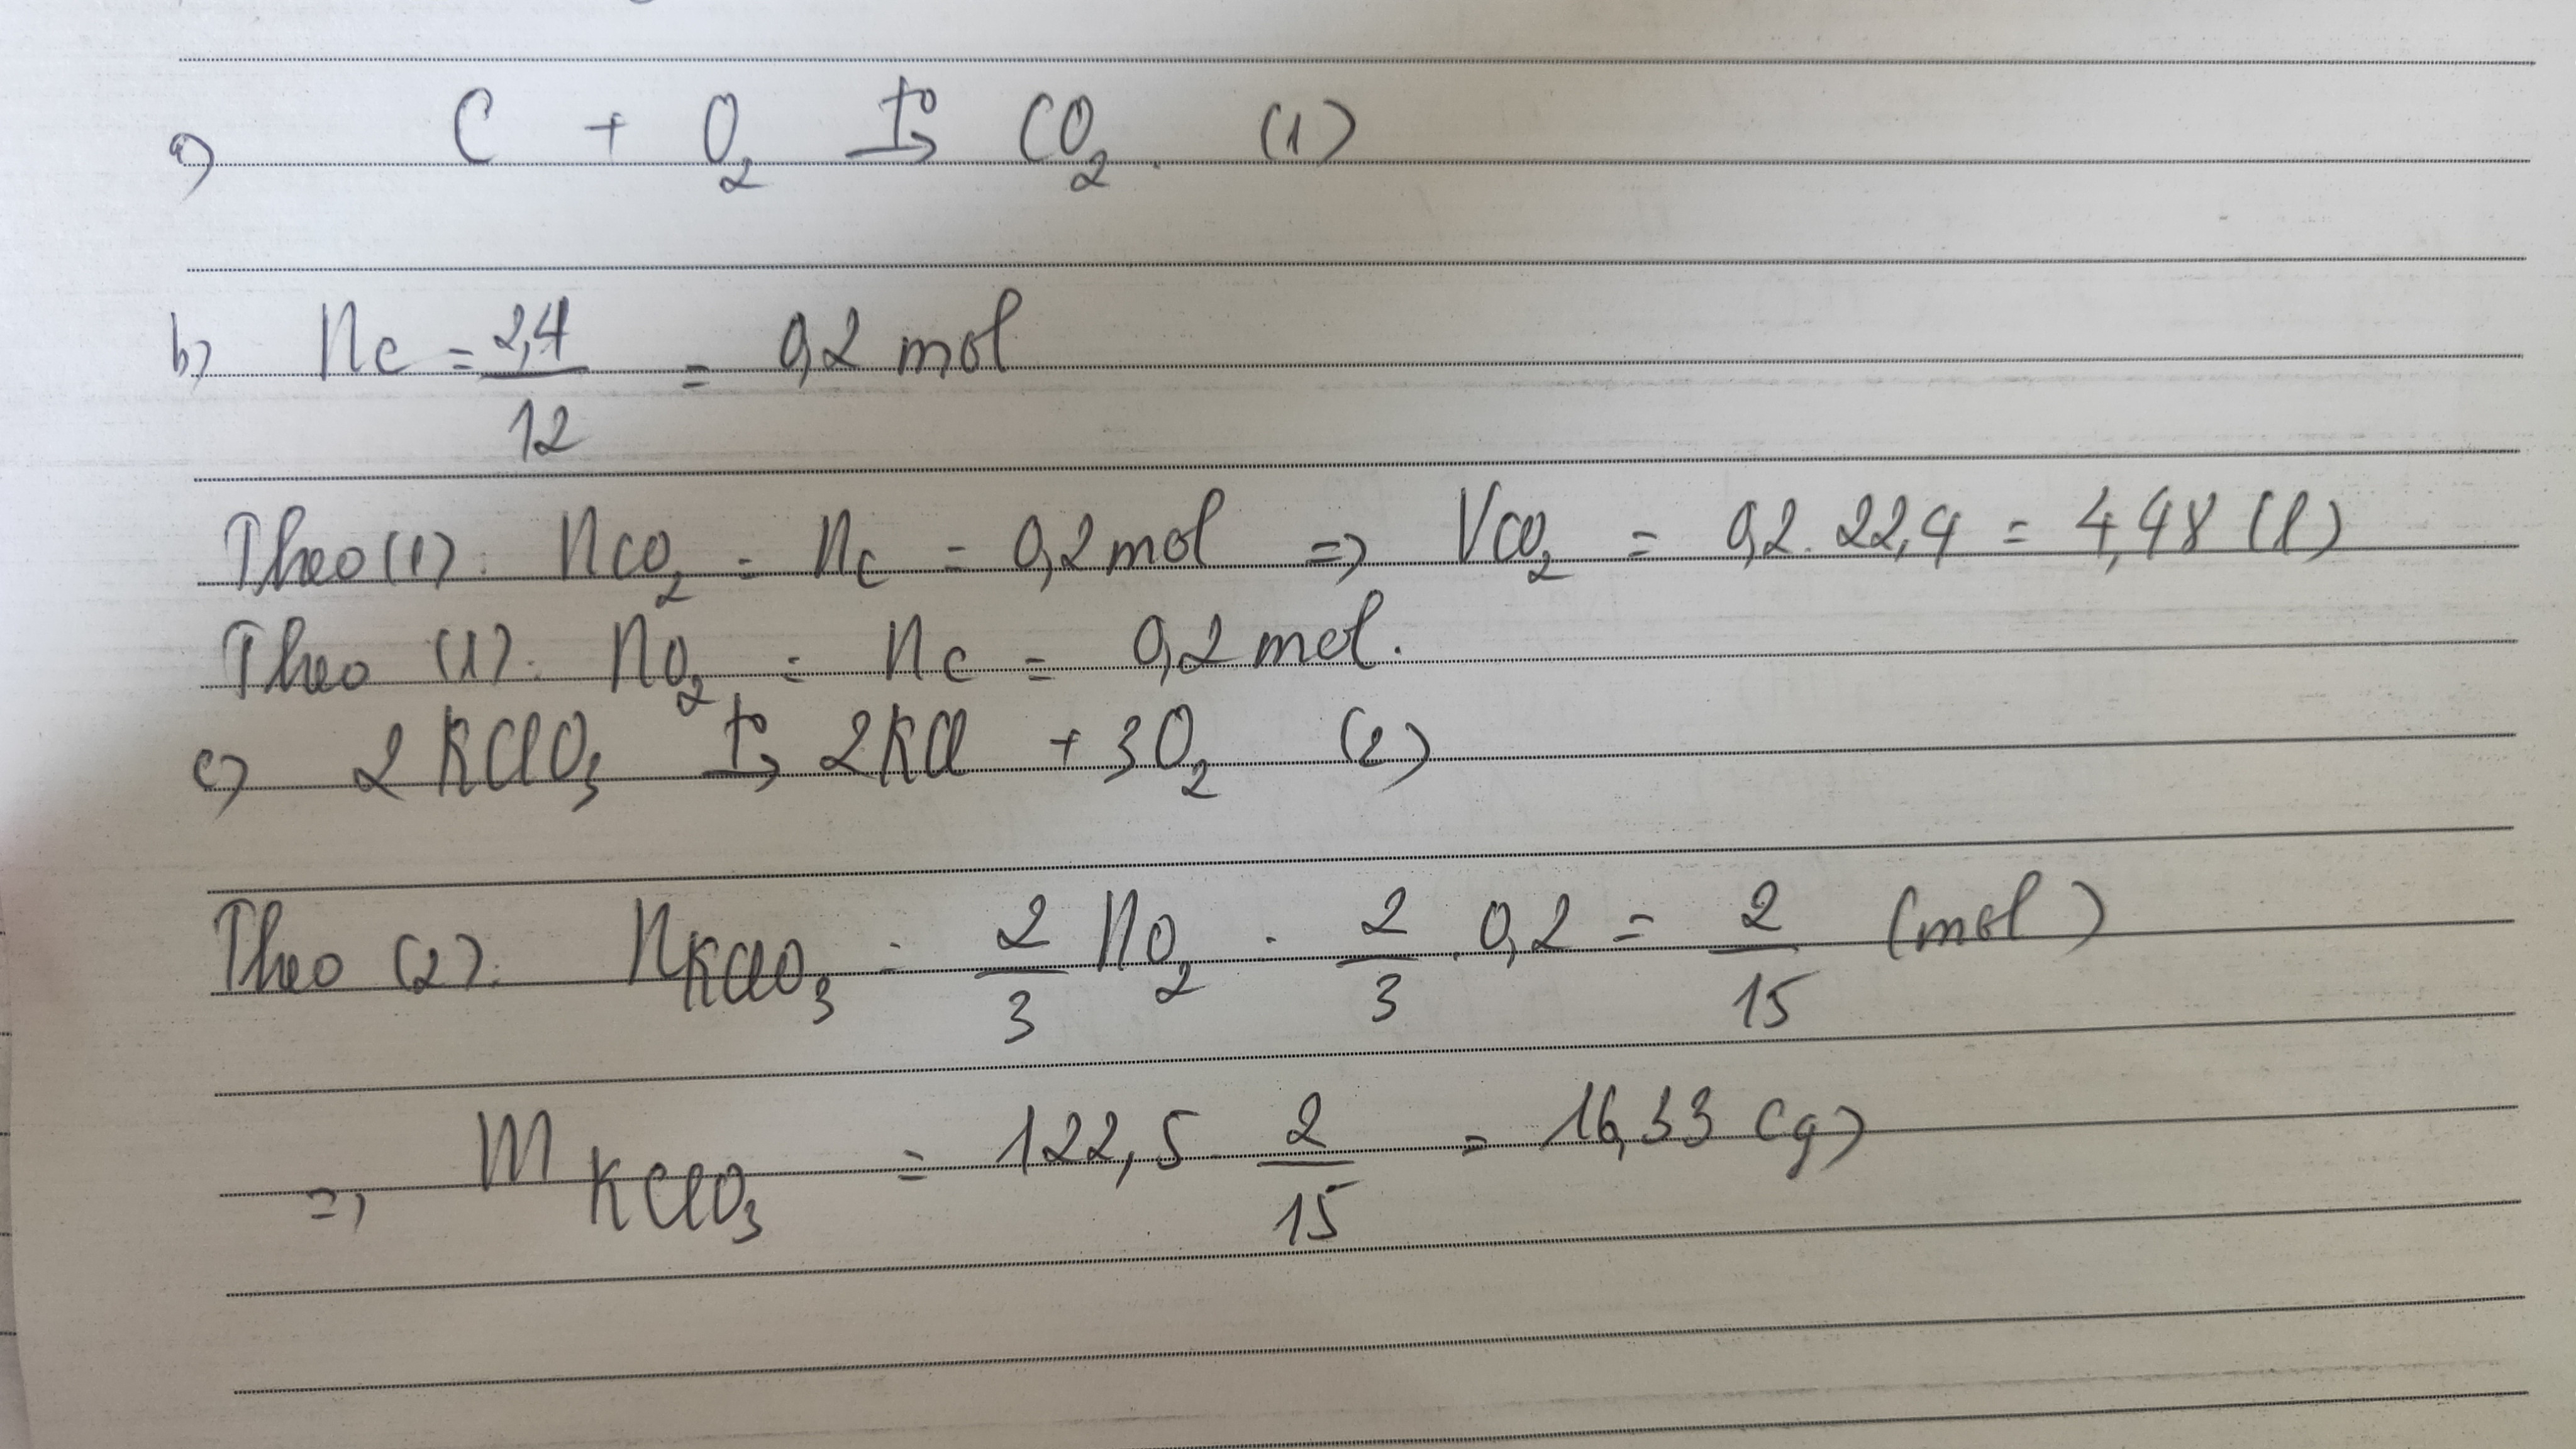 a) C + O₂ →(t°) CO₂. (1)
b) nC = 2,4/12 = 0,2 mol
Theo (1): nCO₂ = nC = 0,2 mol => VCO₂ = 0,2.22,4 = 4,48 (l)
Theo (1): nO₂ = nC = 0,2 mol.
c) 2KClO₃ →(t°) 2KCl + 3O₂ (2)
Theo (2): nKClO₃ = 2/3 nO₂ = 2/3 . 0,2 = 2/15 (mol)
=> mKClO₃ = 122,5 . 2/15 = 16,33 (g)